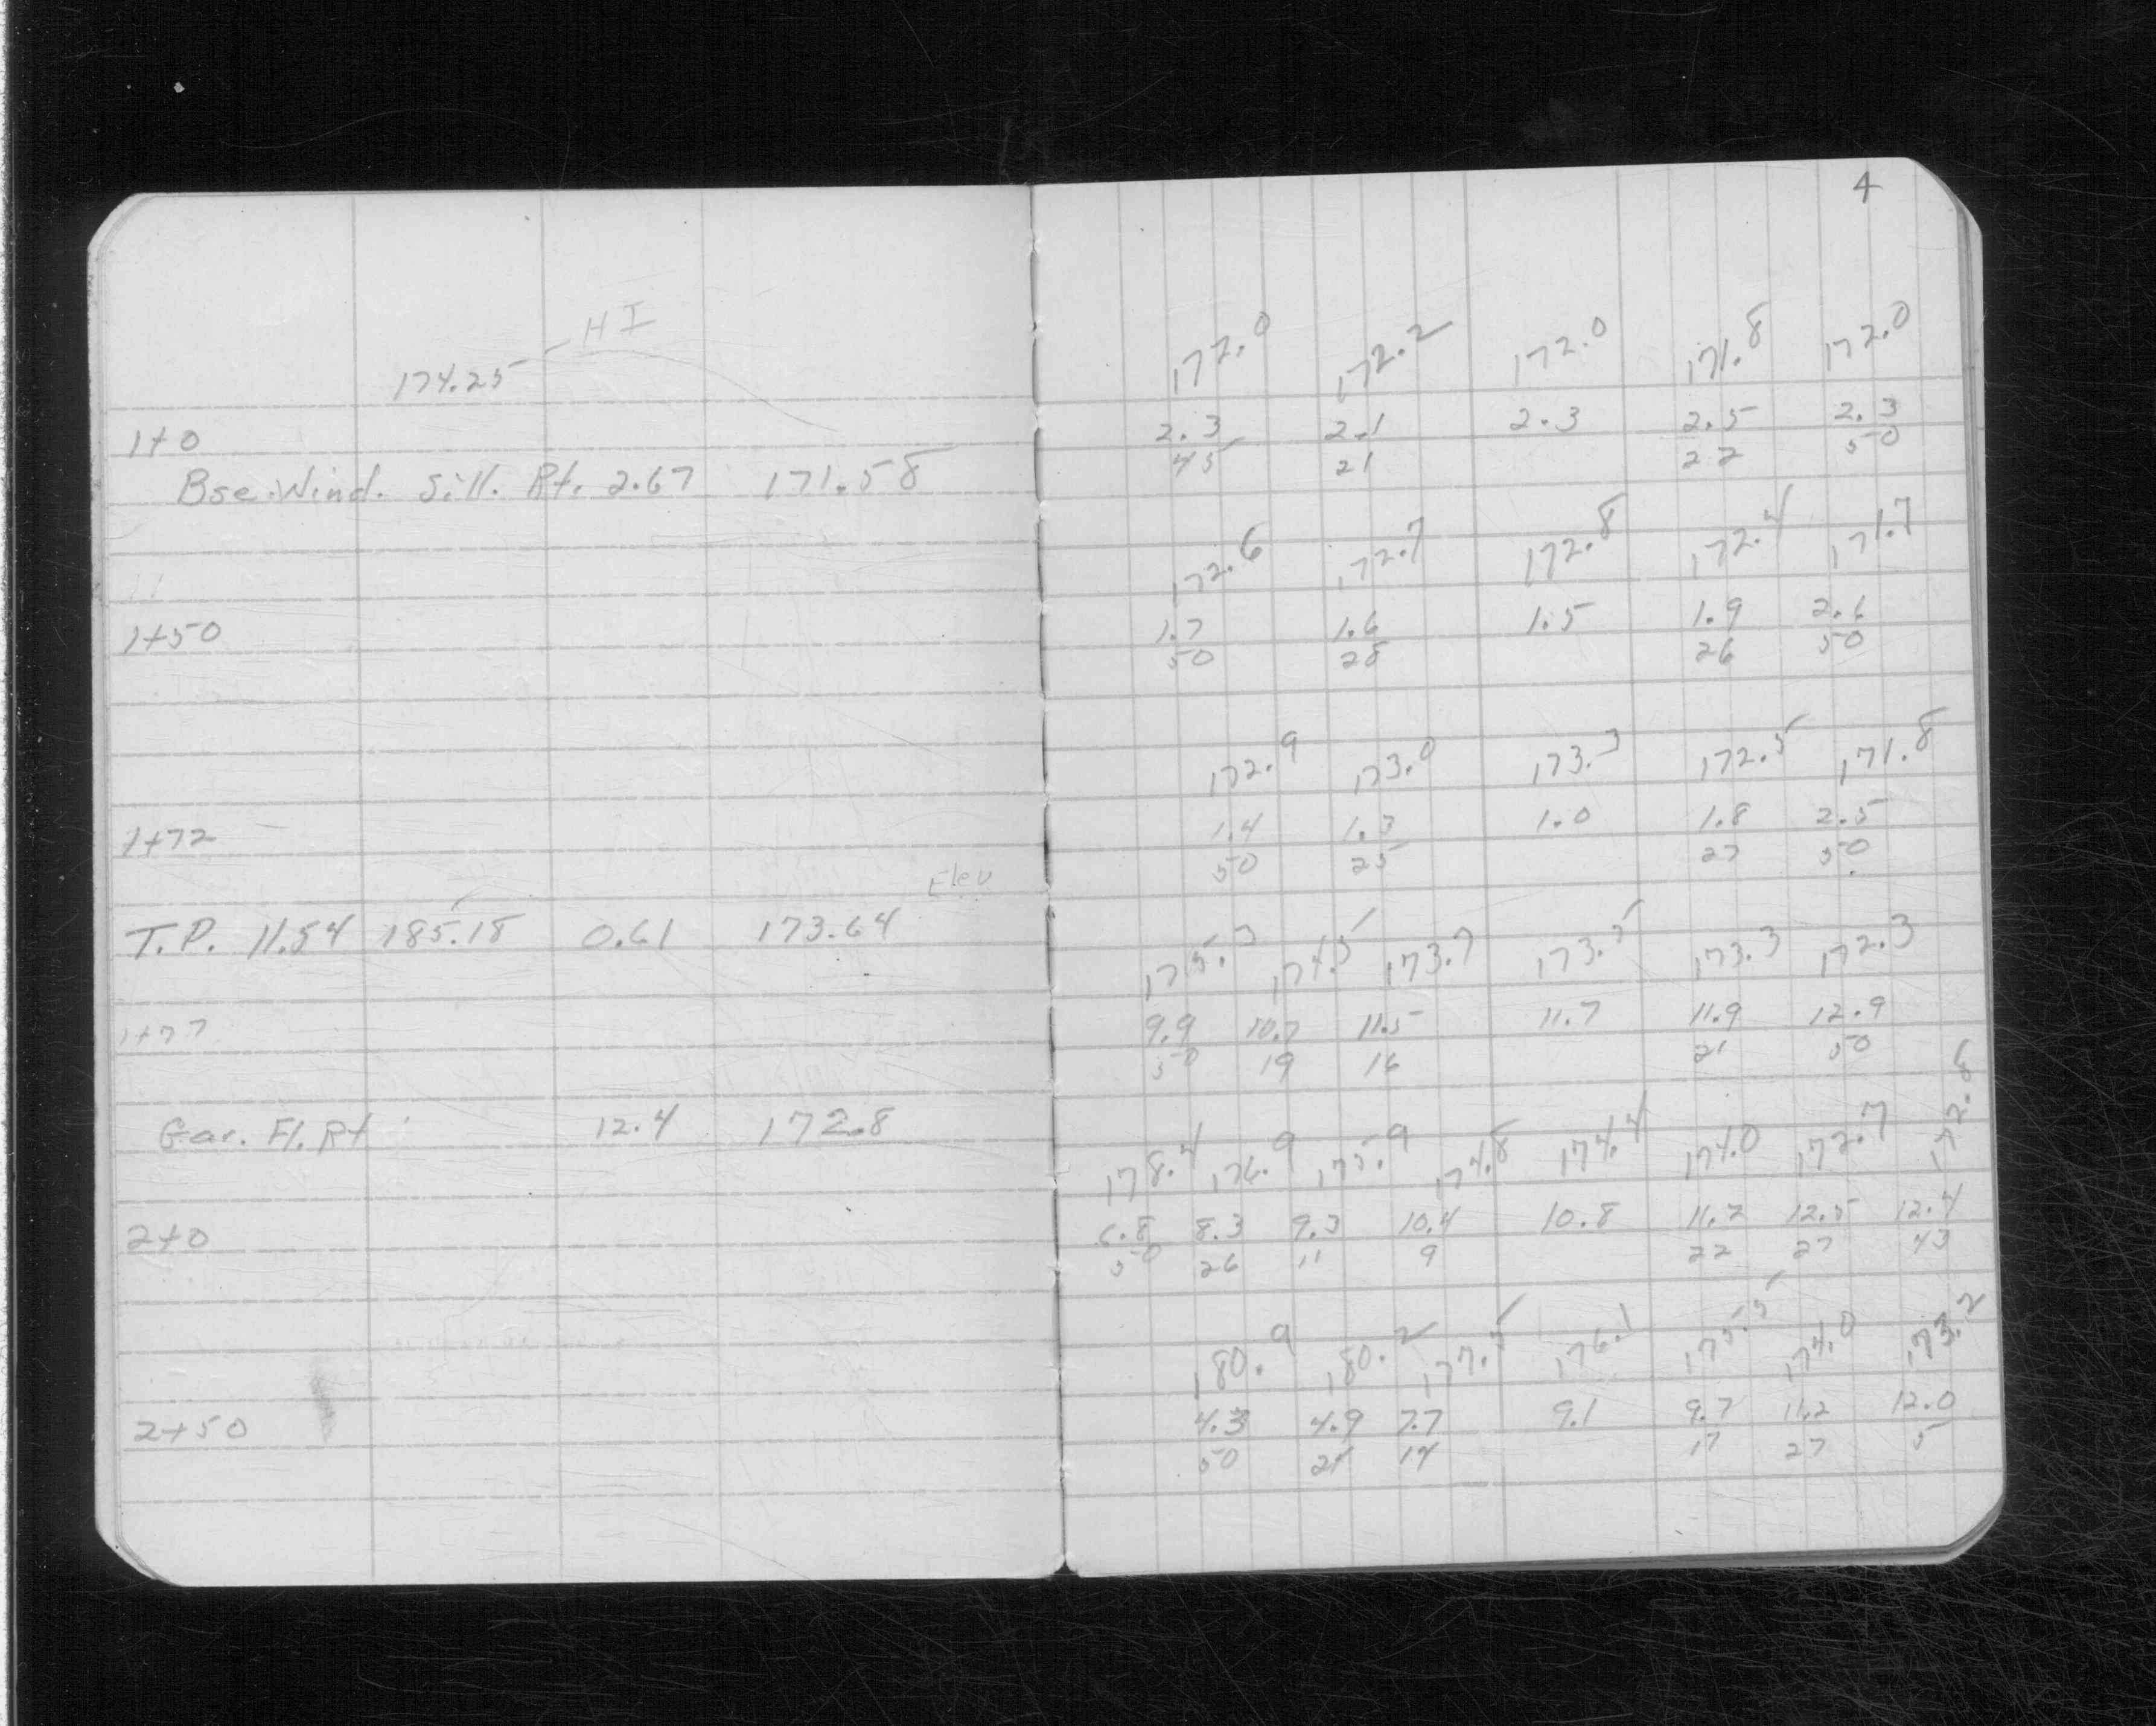 4
HI
174.25
172.0 172.2 172.0 171.8 172.0
1+0 2.3 2.1 2.3 2.5 2.3
45 21 22 50
Bse. Wind. Sill. Rt. 2.67 171.58
172.6 172.7 172.8 172.4 171.7
1+50 1.7 1.6 1.5 1.9 2.6
50 28 26 50
172.9 173.0 173.3 172.5 171.8
1+72 1.4 1.3 1.0 1.8 2.5
50 25 27 50
Elev
T.P. 11.54 185.18 0.61 173.64
175.3 174.5 173.7 173.5 173.3 172.3
1+77 9.9 10.7 11.5 11.7 11.9 12.9
50 19 16 21 50
Gar. Fl. Rt 12.4 172.8
178.4 176.9 175.9 174.8 174.4 174.0 172.7 172.8
2+0 6.8 8.3 9.3 10.4 10.8 11.2 12.5 12.4
50 26 11 9 22 27 43
180.9 180.2 177.5 176.1 175.5 174.0 173.2
2+50 4.3 4.9 7.7 9.1 9.7 11.2 12.0
50 21 14 17 27 5